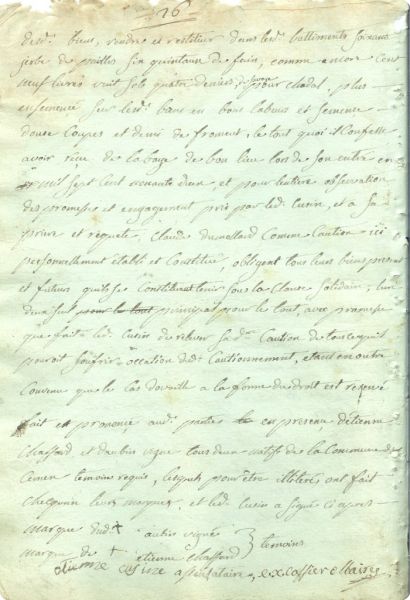 16
desd. biens, rendre et restituer dans lesd. battiments soixante
gerbe de pailles six quintaux de foin, comme encore cent
neuf livres vuit sols quatre deniers, pour chadal, plus
ensemencé sur lesd. bans en bons labeurs et semence
douse coupes et demi de froment, le tout quoi il confesse
avoir reçu de la de bon lieu lors de son entré en
mil sept cent nonante deux, et pour entière observation
des promesses et engagement pris par led. cusin, et a sa
prière et requete, Claude Dumollard comme caution ici
personnellement établi et constitué obligent tous leurs biens présent
et futurs quils se constituent tenir sous la clause solidaire, l'un
deux seul pour le tout principal pour le tout, avec promesse
que fait led. cusin de relever sad. caution de tout ce quil
pouroit soufrir a occation dud. cautionnement, et a été en outre
convenu que le cas a la forme du droit est reservé
fait et prononcé aud. parties en presence d'étienne
Chaffard et vigne tous deux natifs de la Commune de
temoins requis, lesquels pour être illiterés ont fait
chacun leurs marques, et led. cusin a signé ci apres
marque dud. + vigne
marque de + etienne chaffard } temoins
etienne cusin